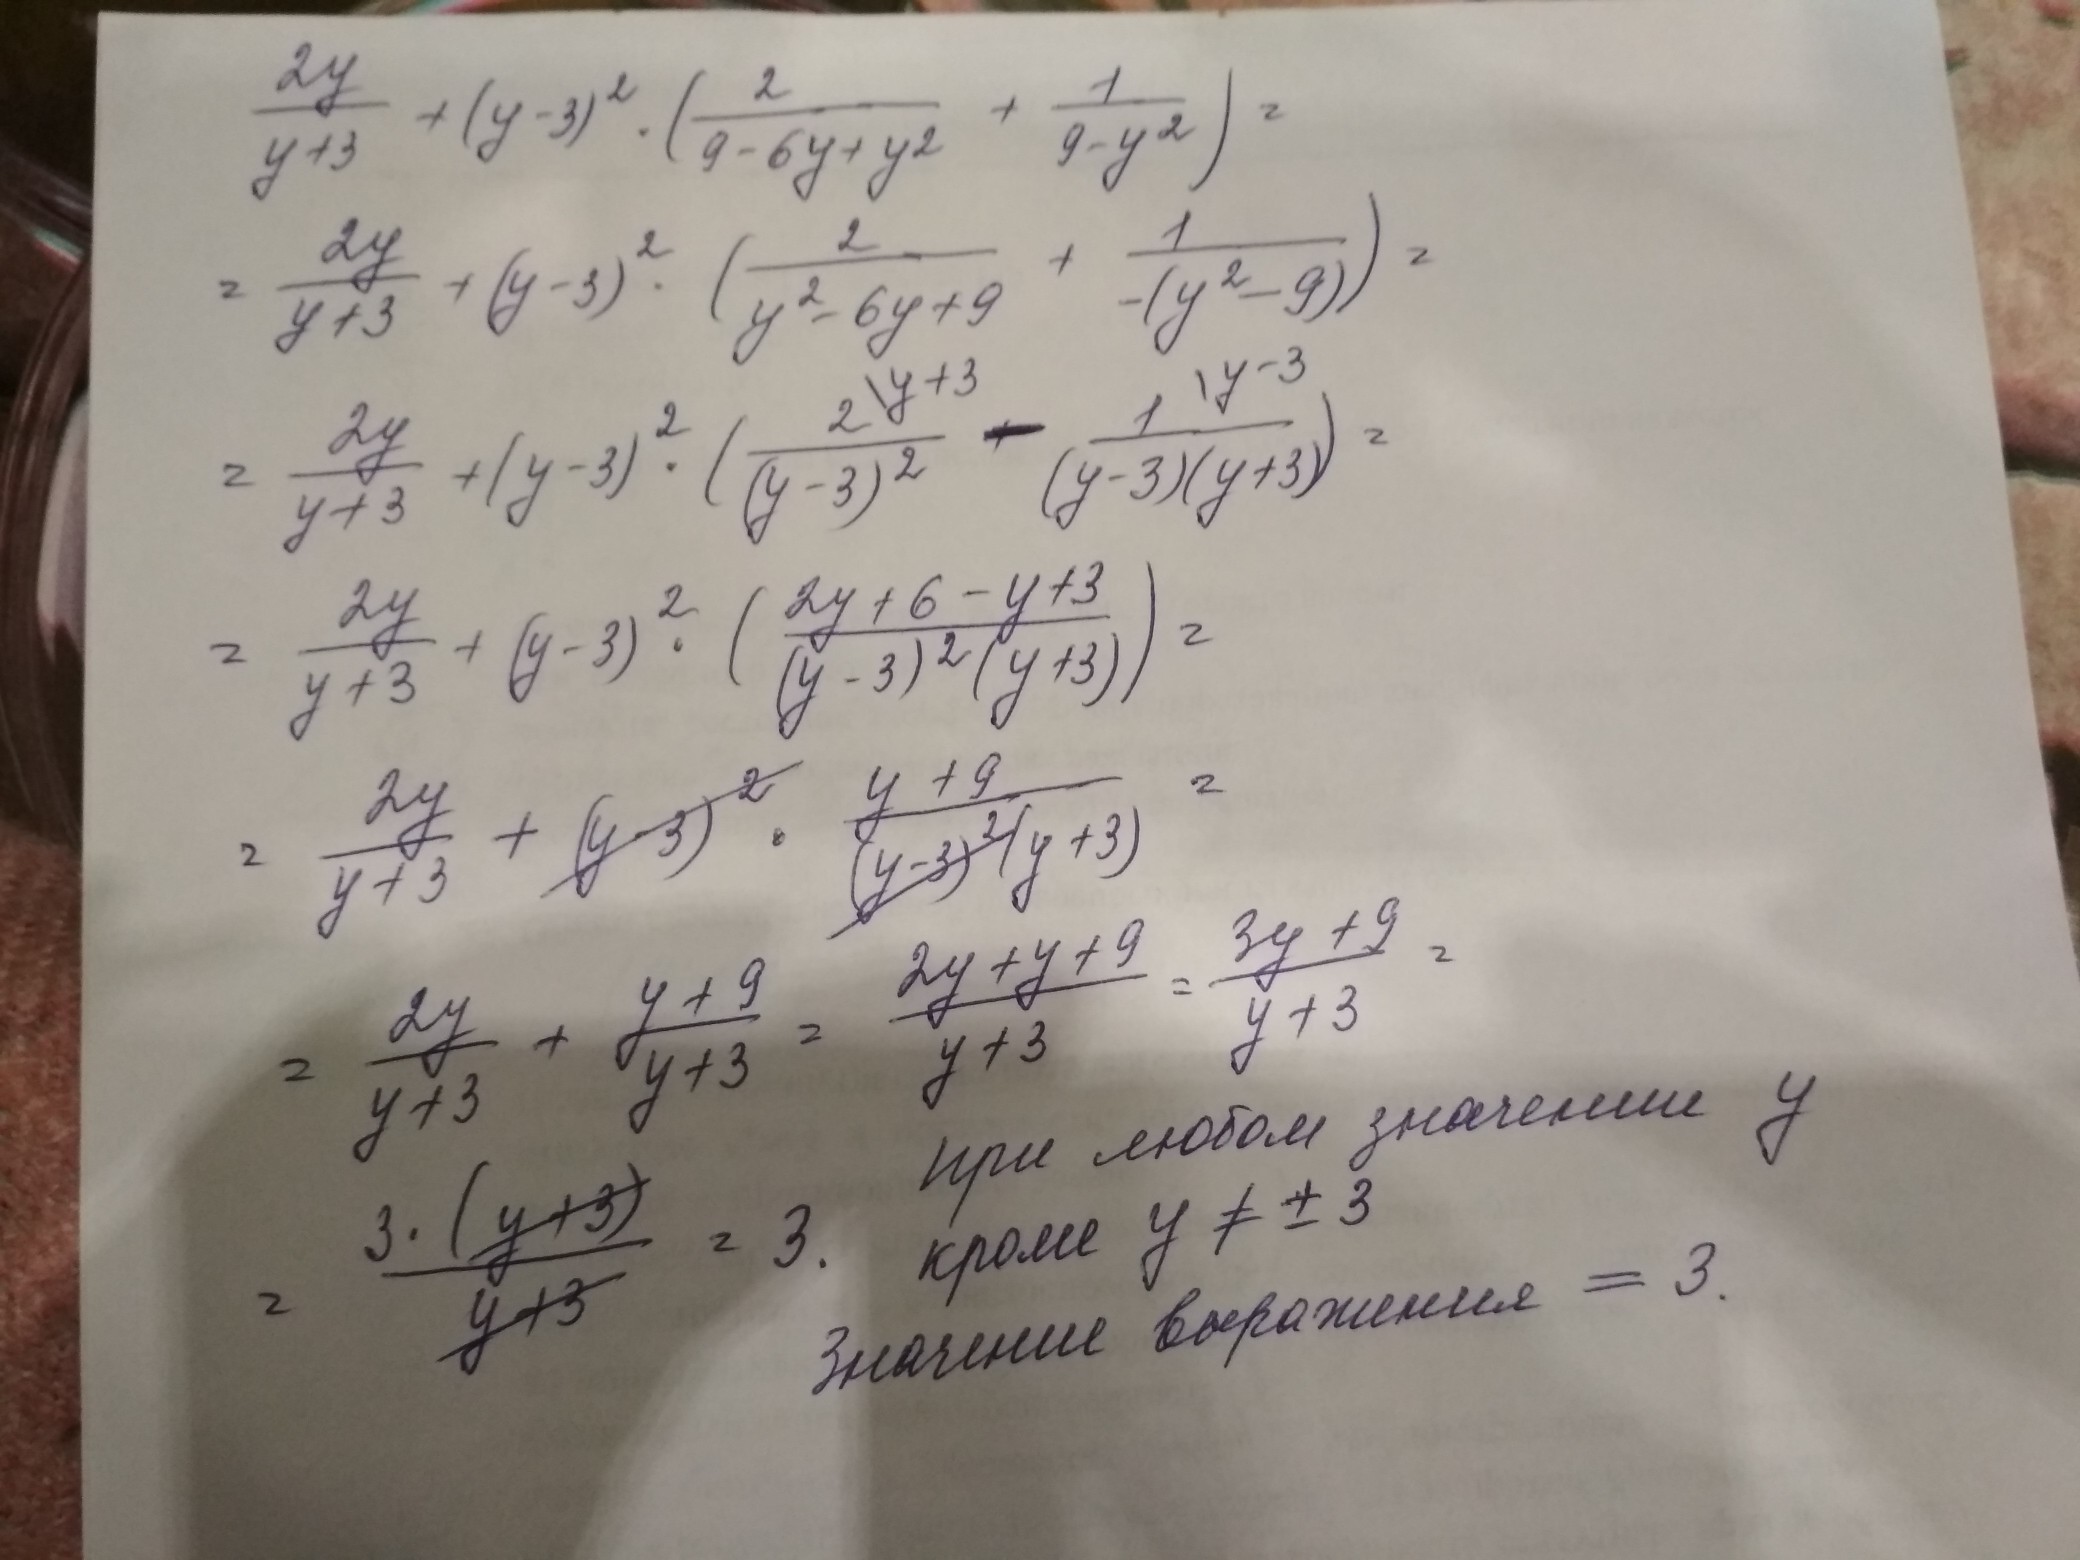 2y/(y+3) + (y-3)² · (2/(9-6y+y²) + 1/(9-y²)) =
= 2y/(y+3) + (y-3)² · (2/(y²-6y+9) + 1/(-(y²-9))) =
= 2y/(y+3) + (y-3)² · (2\y+3/(y-3)² - 1\y-3/((y-3)(y+3))) =
= 2y/(y+3) + (y-3)² · ((2y+6-y+3)/((y-3)²(y+3))) =
= 2y/(y+3) + (y-3)² · (y+9)/((y-3)²(y+3)) =
= 2y/(y+3) + (y+9)/(y+3) = (2y+y+9)/(y+3) = (3y+9)/(y+3) =
= 3·(y+3)/(y+3) = 3.
При любом значении y
кроме y ≠ ± 3
Значение выражения = 3.